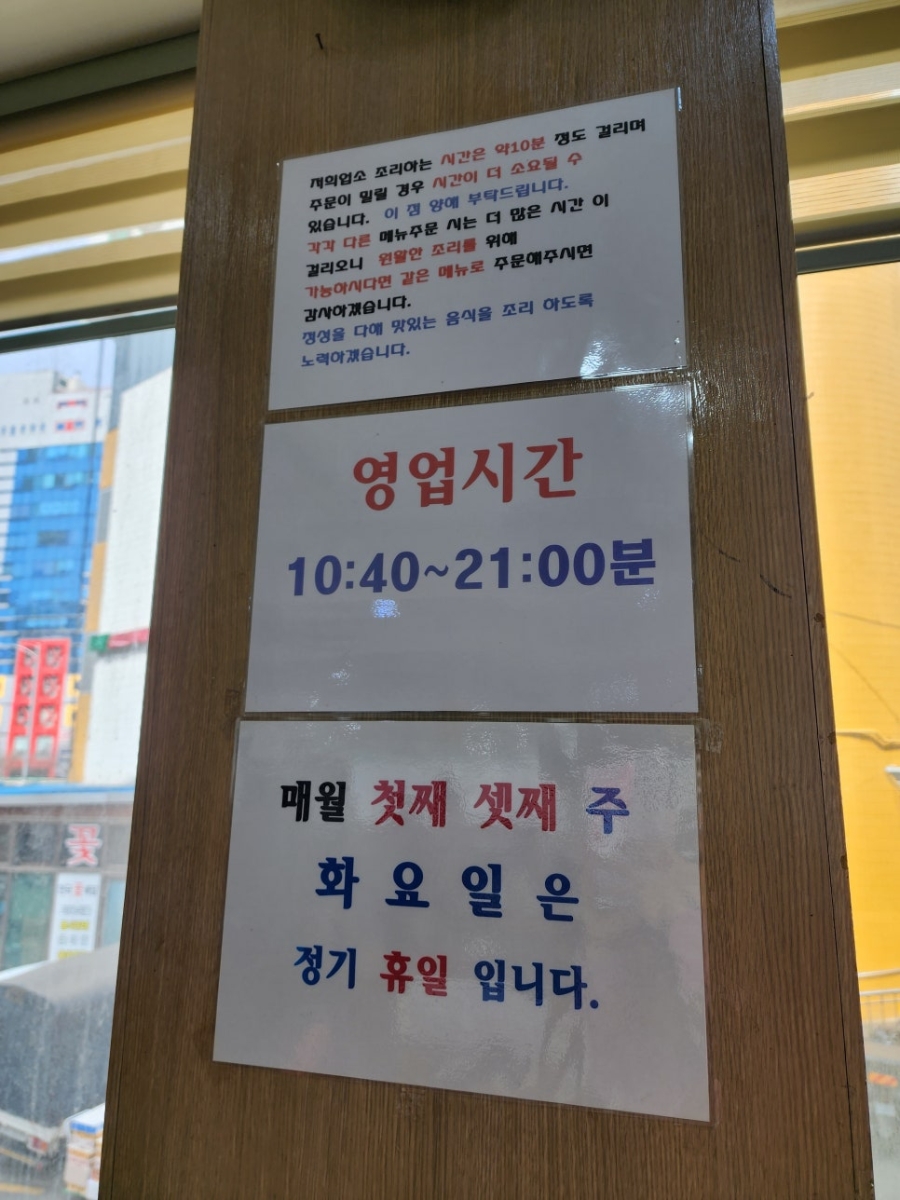 저희업소 조리하는 시간은 약10분 정도 걸리며
주문이 밀릴 경우 시간이 더 소요될 수
있습니다. 이 점 양해 부탁드립니다.
각각 다른 메뉴주문 시는 더 많은 시간 이
걸리오니 원활한 조리를 위해
가능하시다면 같은 메뉴로 주문해주시면
감사하겠습니다.
정성을 다해 맛있는 음식을 조리 하도록
노력하겠습니다.
영업시간
10:40~21:00분
매월 첫째 셋째 주
화 요 일 은
정기 휴일 입니다.
꽃